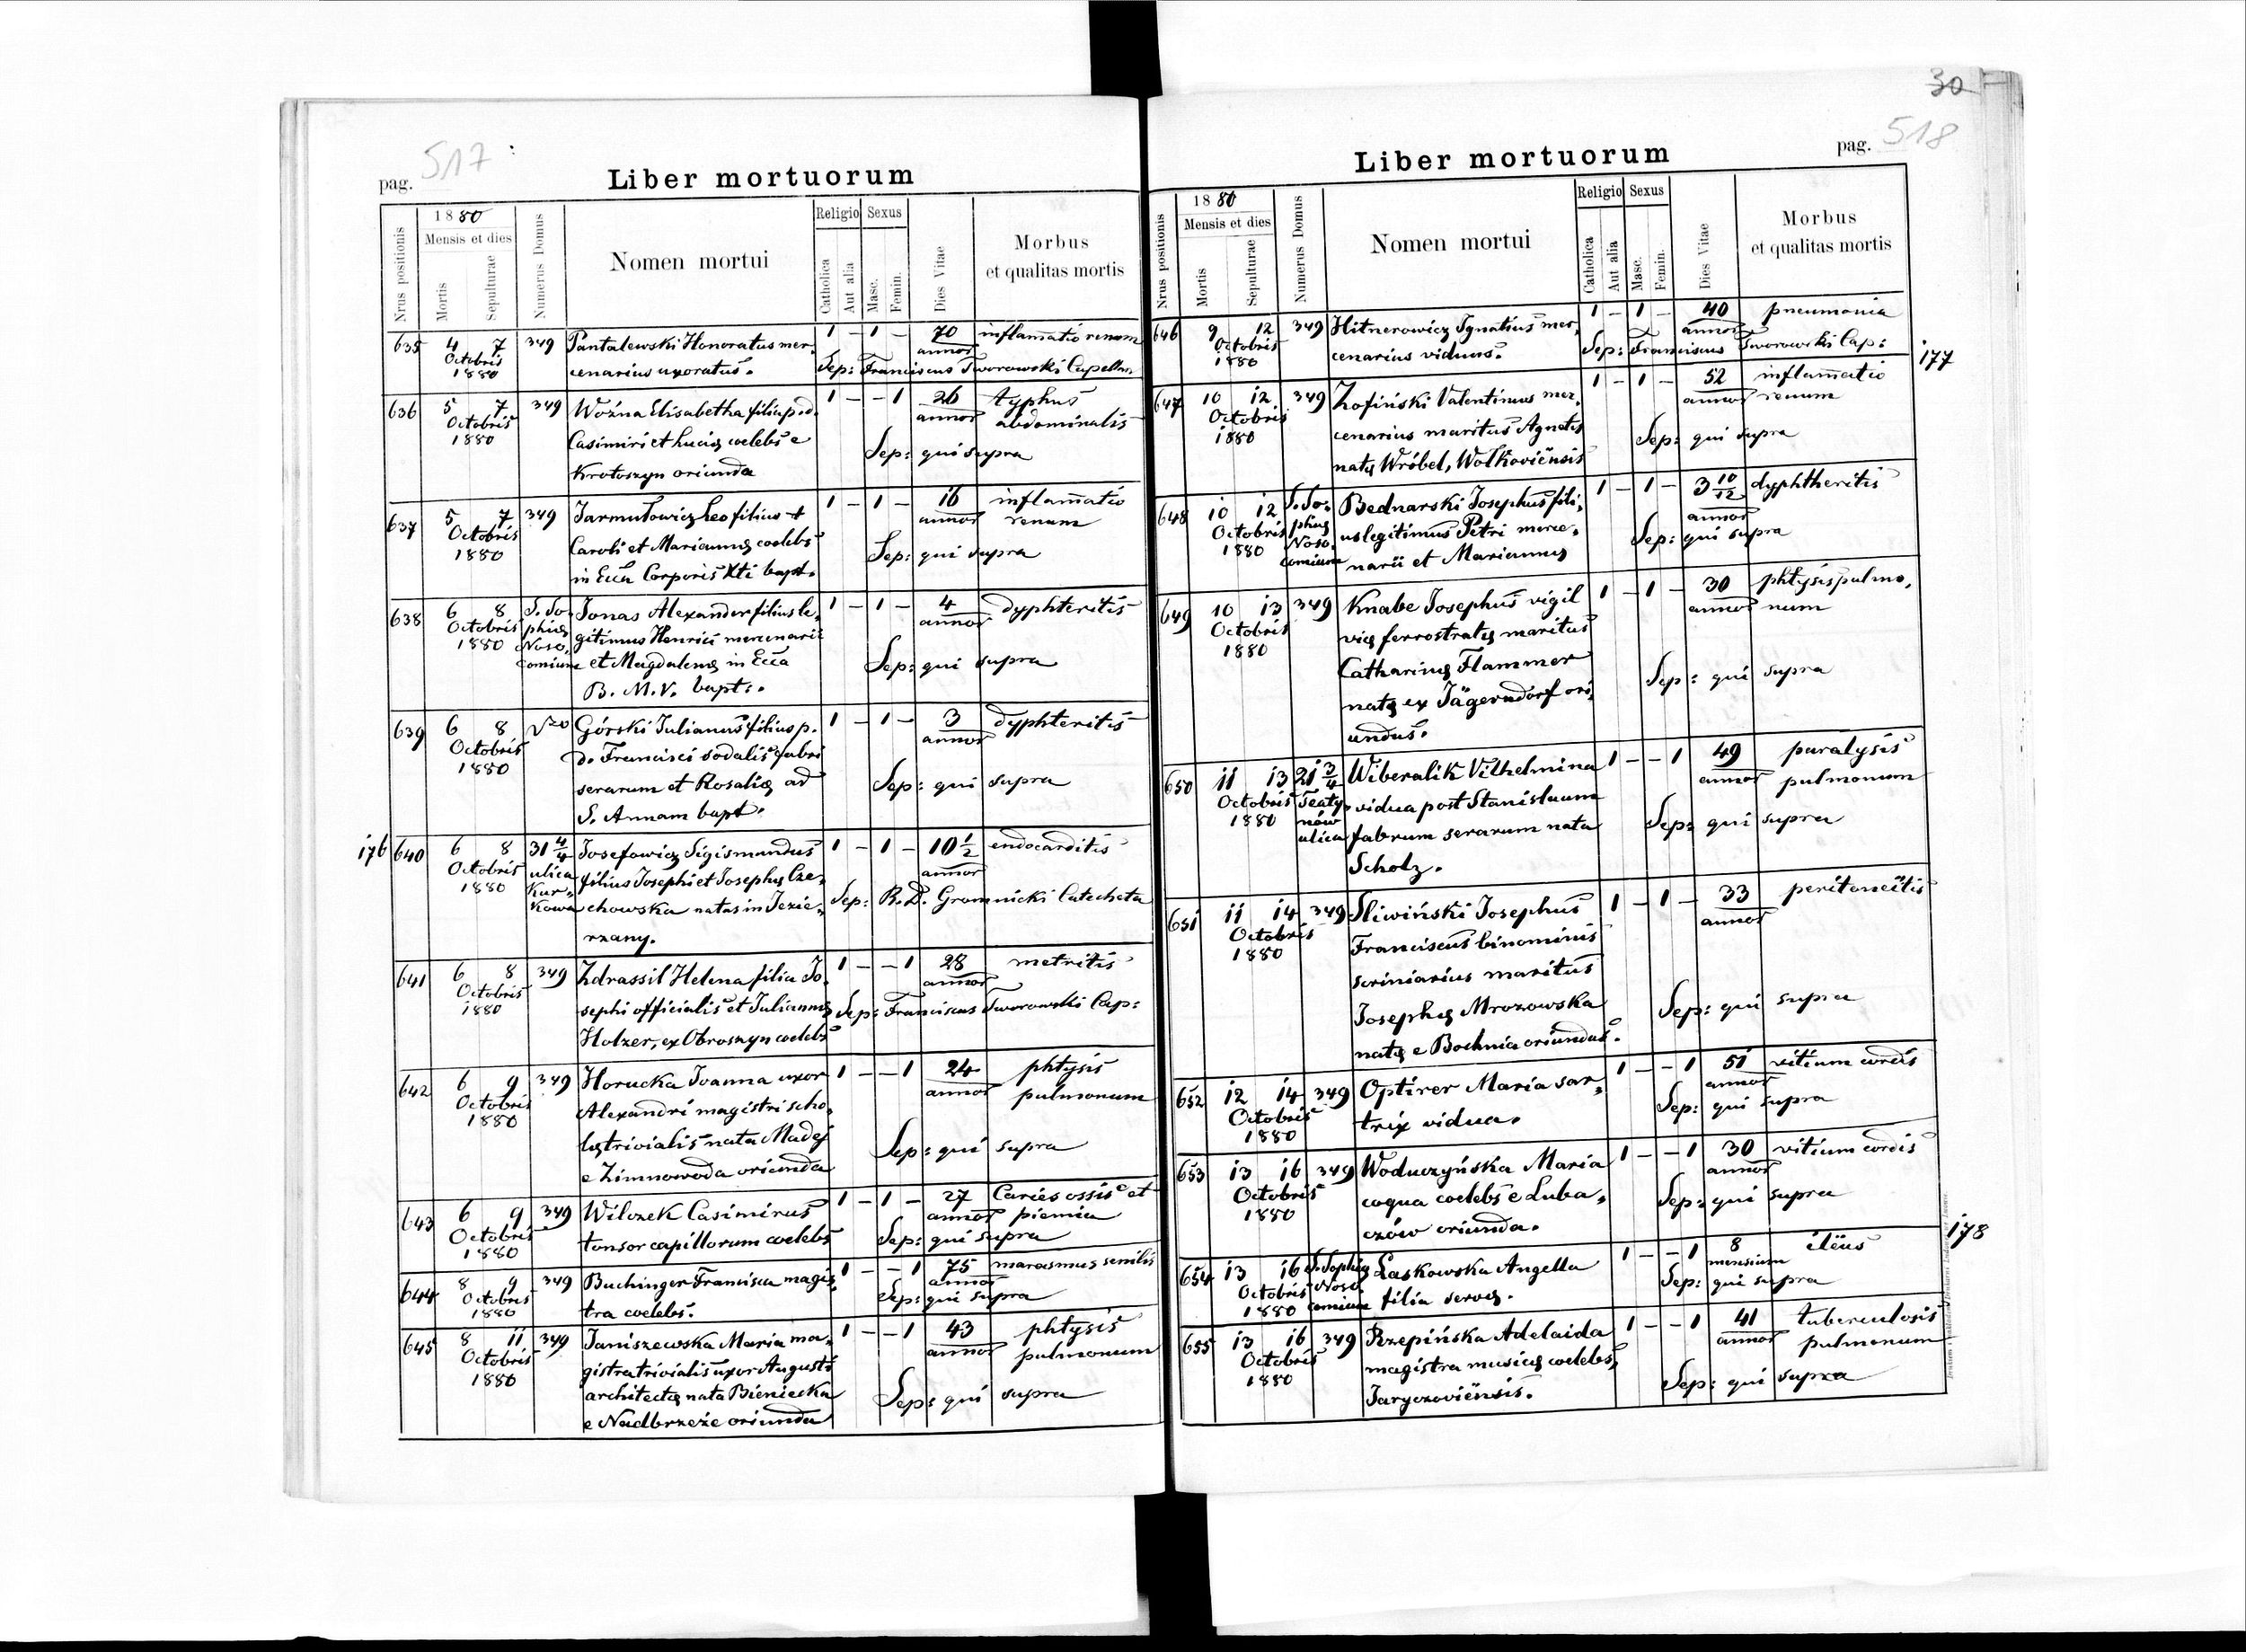 517
pag.
Liber mortuorum
Nrus positionis
1880
Mensis et dies
Mortis
Sepulturae
Numerus Domus
Nomen mortui
Religio
Catholica
Aut alia
Sexus
Masc.
Femin.
Dies Vitae
Morbus
et qualitas mortis
635 4 7 349 Pantalewski Honoratus mer, 1 – 1 – 70 inflam̄atio renum
Octobris cenarius uxoratus. annor
1880 Sep: Franciscus Tworowski Capellan
636 5 7 349 Woźna Elisabetha filia p.d. 1 – – 1 26 typhus
Octobris Casimiri et Lucią coelebs e annor abdominalis
1880 Krotoszyn oriunda Sep: qui supra
637 5 7 349 Jarmułowicz Leo filius + 1 – 1 – 16 inflam̄atio
Octobris Caroli et Mariannę coelebs annor renum
1880 in Eccla Corporis Xti bapt. Sep: qui supra
638 6 8 S. So, Jonas Alexander filius le, 1 – 1 – 4 dyphteritis
Octobris phię gitimus Henrici mercenarii annor
1880 Noso, et Magdalenę in Ecca Sep: qui supra
comium B. M. V. bapt:.
639 6 8 Górski Julianus filius p. 1 – 1 – 3 dyphteritis
Octobris d. Francisci sodalis fabri annor
1880 serarum et Rosalię ad Sep: qui supra
S. Annam bapt.
176 640 6 8 31 4/4 Josefowicz Sigismundus 1 – 1 – 10 1/2 endocarditis
Octobris ulica filius Josephi et Josephę Cze, annor
1880 Kur, chowska natus in Jezie, Sep: R. D. Gromnicki Catecheta
kowa rzany.
641 6 8 349 Zdrassil Helena filia Jo, 1 – – 1 28 metritis
Octobris sephi officialis et Juliannę annor
1880 Holzer, ex Obroszyn coelebs Sep: Franciscus Tworowski Cap:
642 6 9 349 Horucka Joanna uxor 1 – – 1 24 phtysis
Octobris Alexandri magistri scho, annor pulmonum
1880 lę trivialis nata Madej Sep: qui supra
e Zimnowoda oriunda
643 6 9 349 Wilczek Casimirus 1 – 1 – 27 Caries ossis et
Octobris tonsor capillorum coelebs annor piemia
1880 Sep: qui supra
644 8 9 349 Buchinger Francisca magis, 1 – – 1 75 marasmus senilis
Octobris tra coelebs. annor
1880 Sep: qui supra
645 8 11 349 Janiszewska Maria ma, 1 – – 1 43 phtysis
Octobris gistra trivialis uxor Augusti annor pulmonum
1880 architectę nata Bieniecka Sep: qui supra
e Nadbrzeże oriunda
30
518
pag.
Liber mortuorum
Nrus positionis
1880
Mensis et dies
Mortis
Sepulturae
Numerus Domus
Nomen mortui
Religio
Catholica
Aut alia
Sexus
Masc.
Femin.
Dies Vitae
Morbus
et qualitas mortis
646 9 12 349 Hitnerowicz Ignatius mer, 1 – 1 – 40 pneumonia
Octobris cenarius viduus. annor
1880 Sep: Franciscus Tworowski Cap:
177
647 10 12 349 Zofiński Valentinus mer, 1 – 1 – 52 inflam̄atio
Octobris cenarius maritus Agnetę annor renum
1880 natę Wróbel, Wołkoviensis Sep: qui supra
648 10 12 S. So, Bednarski Josephus fili, 1 – 1 – 3 10/12 dyphtheritis
Octobris phię us legitimus Petri merce, annor
1880 Noso, narii et Mariannę Sep: qui supra
comium
649 10 13 349 Knabe Josephus vigil 1 – 1 – 30 phtysis pulmo,
Octobris vię ferrostratę maritus annor num
1880 Catharinę Flammer Sep: qui supra
natę ex Jägerndorf ori,
undus.
650 11 13 21 3/4 Wiberalik Vilhelmina 1 – – 1 49 paralysis
Octobris Teaty, vidua post Stanislaum annor pulmonum
1880 nów fabrum serarum nata Sep: qui supra
ulica Scholz.
651 11 14 349 Śliwiński Josephus 1 – 1 – 33 peritoneitis
Octobris Franciscus binominis annor
1880 scriniarius maritus
Josephę Mrozowska Sep: qui supra
natę e Bochnia oriundus.
652 12 14 349 Optirer Maria sar, 1 – – 1 51 vitium cordis
Octobris trix vidua. annor
1880 Sep: qui supra
653 13 16 349 Woduczyńska Maria 1 – – 1 30 vitium cordis
Octobris coqua coelebs e Luba, annor
1880 czów oriunda. Sep: qui supra
178
654 13 16 S. Sophię Laskowska Angella 1 – – 1 8 ileus
Octobris Noso, filia servę. mensium
1880 comium Sep: qui supra
655 13 16 349 Rzepińska Adelaida 1 – – 1 41 tuberculosis
Octobris magistra musicę coelebs, annor pulmonum
1880 Jaryczoviensis. Sep: qui supra